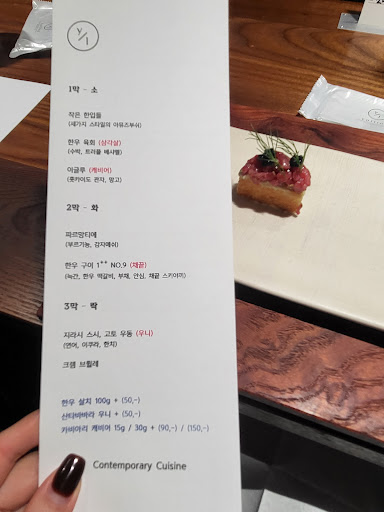 Y/I
1막 - 소
작은 한입들
(세가지 스타일의 아뮤즈부쉬)
한우 육회 (삼각살)
(수박, 트러플 베샤멜)
이글루 (캐비어)
(홋카이도 관자, 망고)
2막 - 화
파르망티에
(부르기뇽, 감자메쉬)
한우 구이 1++ NO.9 (채끝)
(늑간, 한우 떡갈비, 부채, 안심, 채끝 스키야끼)
3막 - 락
지라시 스시, 고토 우동 (우니)
(연어, 이쿠라, 한치)
크렘 브륄레
한우 살치 100g + (50,-)
산타바바라 우니 + (50,-)
카비아리 캐비어 15g / 30g + (90,-) / (150,-)
Contemporary Cuisine